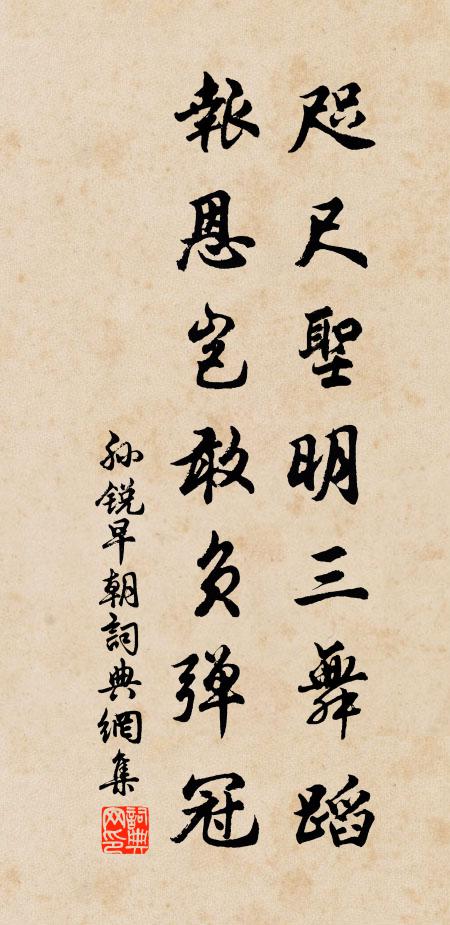 咫尺聖明三舞蹈
報恩豈敢負弹冠
孙锐早朝詞典網集
詞典网印